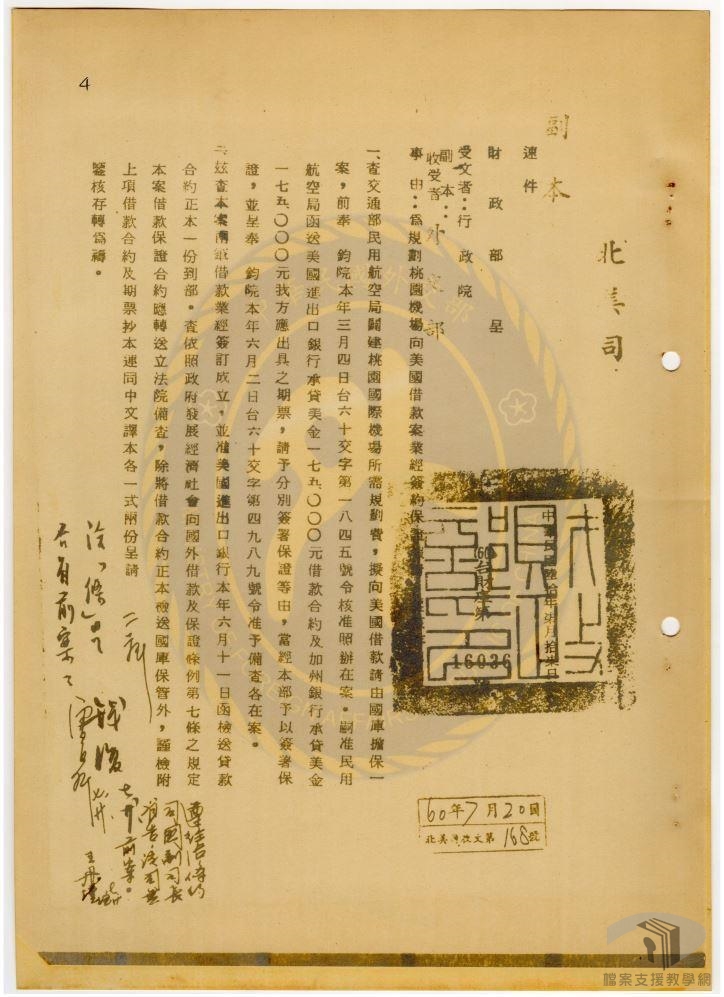 4
北美司
副本
速件
財政部呈
受文者：行政院
副本
收受者：外交部
事由：爲規劃桃園機場向美國借款案業經簽約保
中華民國陸拾年柒月拾
(60)台財庫第
16036
一、查交通部民用航空局闢建桃園國際機場所需規劃費，擬向美國借款請由國庫擔保一
案，前奉　鈞院本年三月四日台六十交字第一八四五號令核准照辦在案。嗣准民用
航空局函送美國進出口銀行承貸美金一七五、〇〇〇元借款合約及加州銀行承貸美金
一七五、〇〇〇元我方應出具之期票，請予分別簽署保證等由，當經本部予以簽署保
證，並呈奉　鈞院本年六月二日台六十交字第四九八九號令准予備查各在案。
二、茲查本案兩筆借款業經簽訂成立，並准美國進出口銀行本年六月十一日函檢送貸款
合約正本一份到部。查依照政府發展經濟社會向國外借款及保證條例第七條之規定
本案借款保證合約應轉送立法院備查，除將借款合約正本檢送國庫保管外，謹檢附
上項借款合約及期票抄本連同中文譯本各一式兩份呈請
鑒核存轉爲禱。
60年7月20日
北美 收文第168號
檔案支援教學網